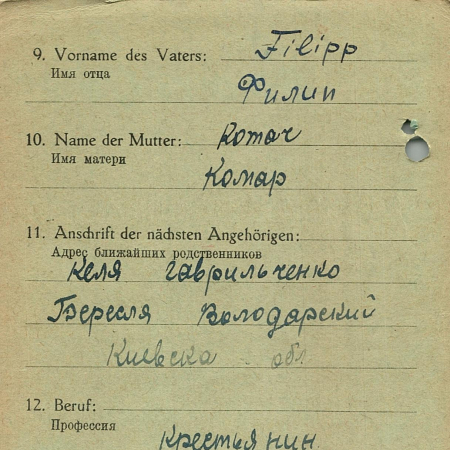 9. Vorname des Vaters: Filipp
Имя отца
Филип
10. Name der Mutter: Komar
Имя матери
Комар
11. Anschrift der nächsten Angehörigen:
Адрес ближайших родственников
Келя Гаврильченко
Бересля Володарский
Киевска обл
12. Beruf:
Профессия
Крестьянин